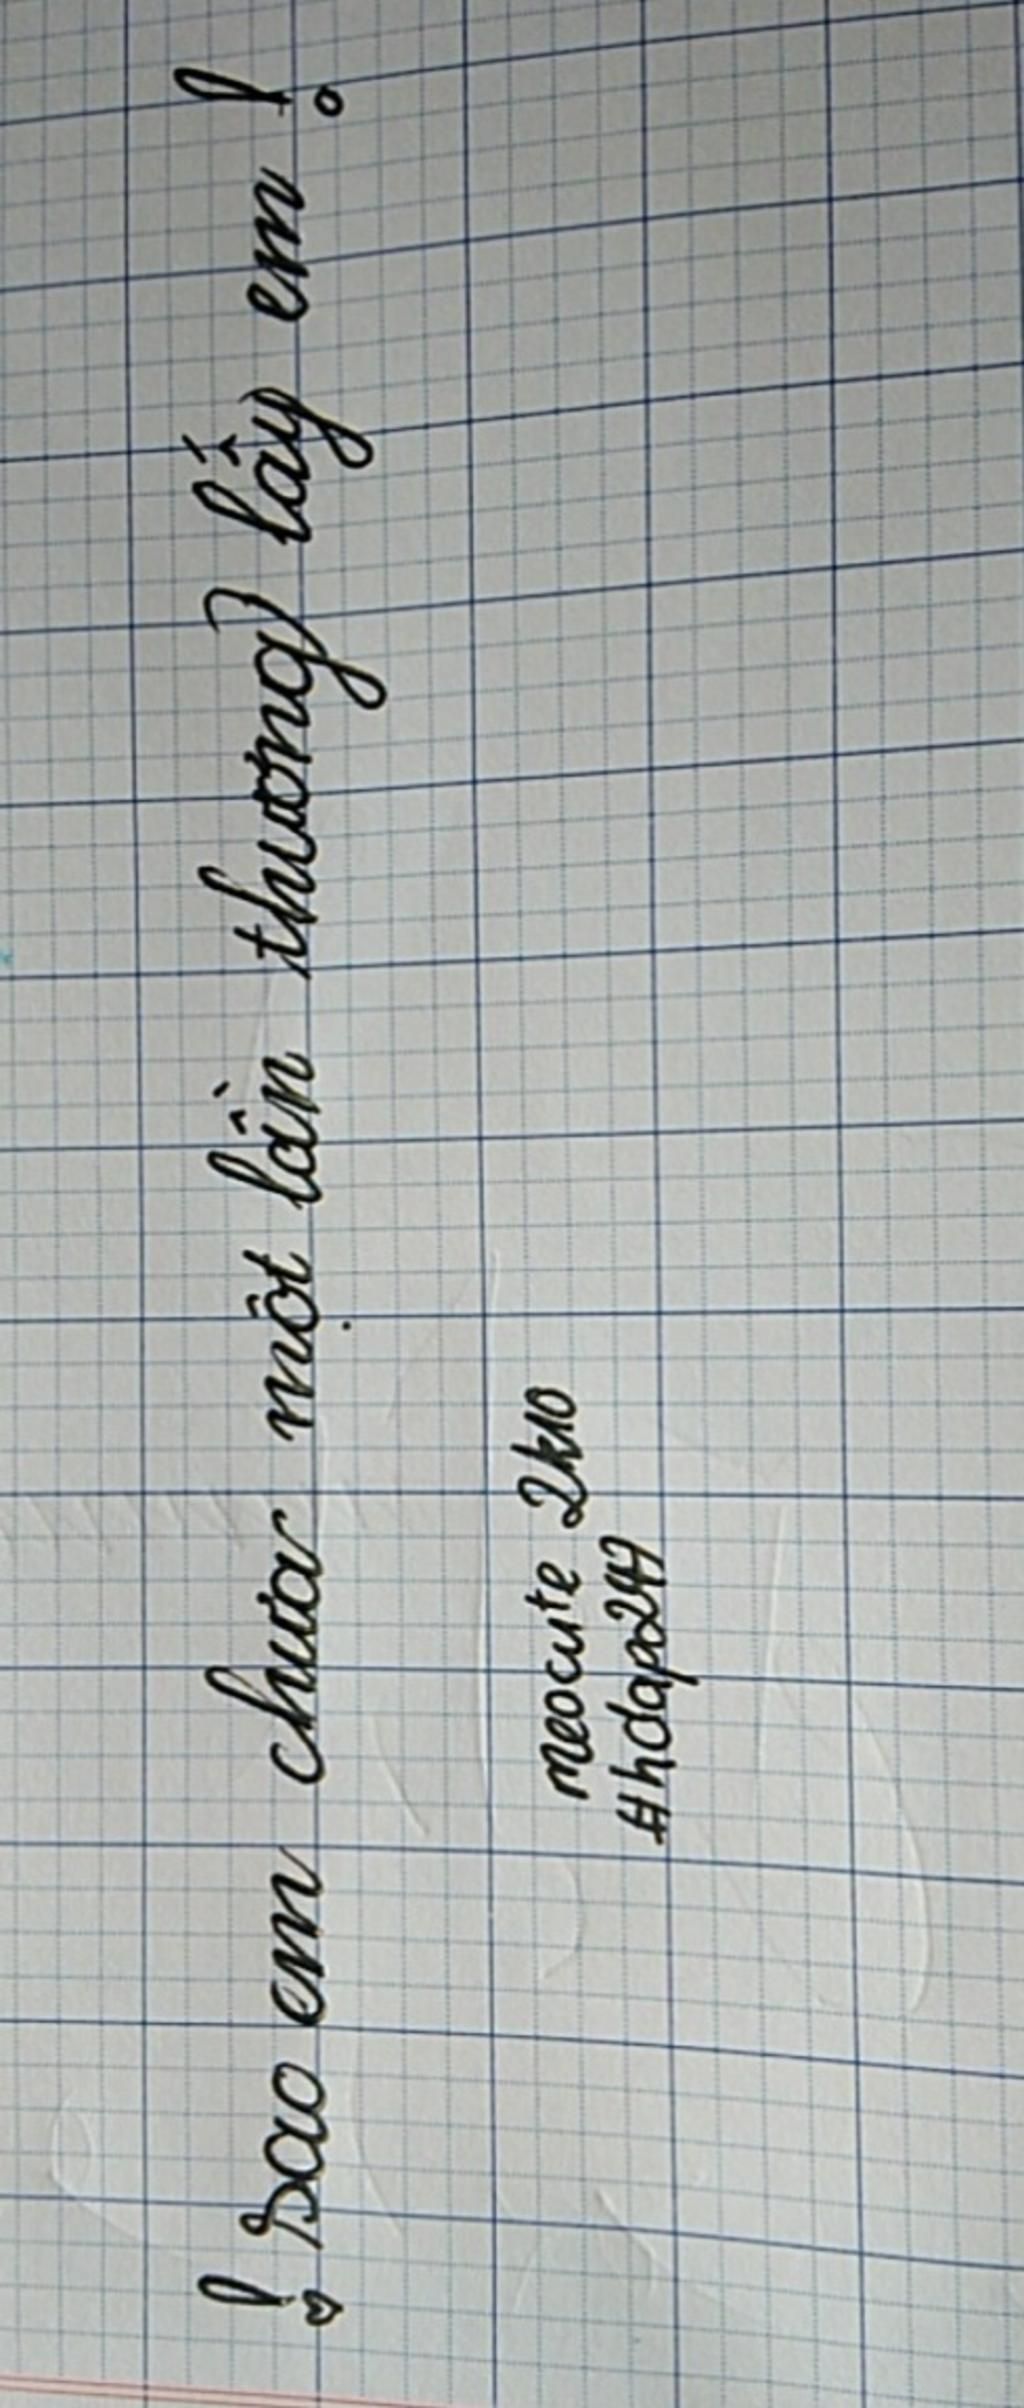 ! sao em chưa một lần thương lấy em !
meocute 2k10
#hdapo247